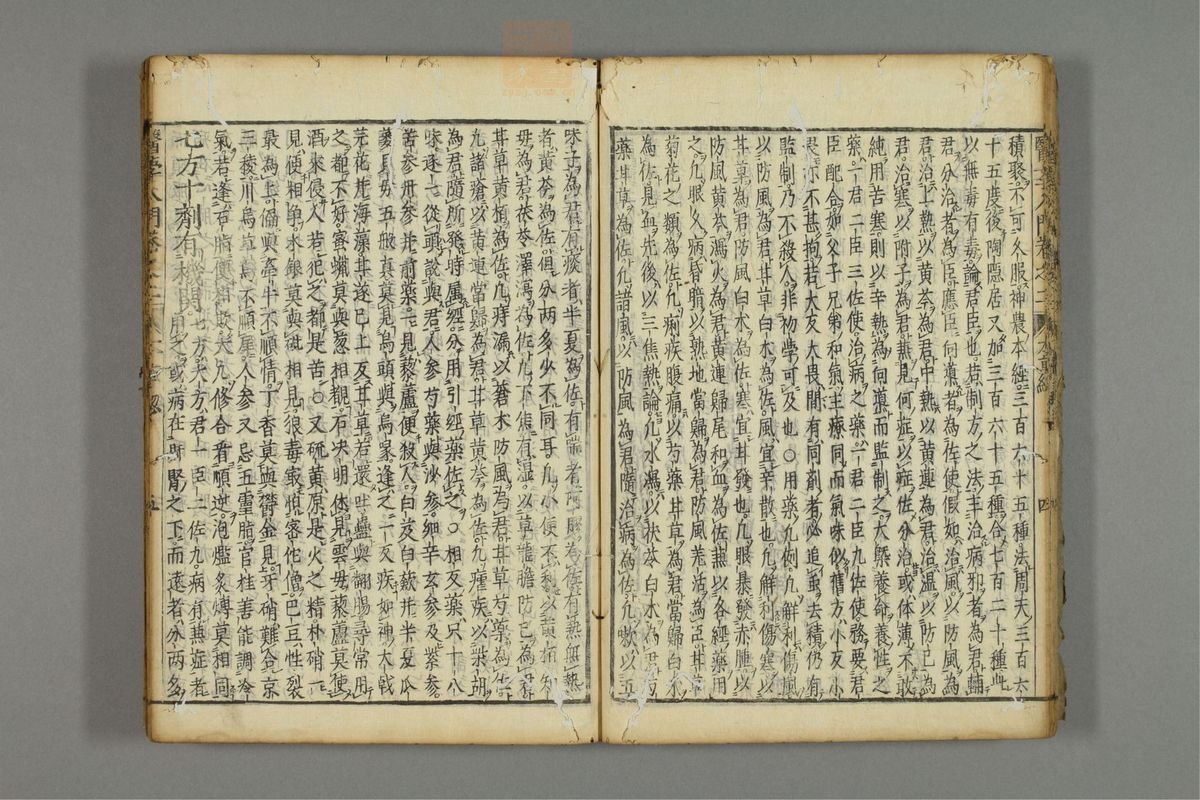 醫學入門卷之二
積聚不可久服神農本經三百六十五種法周天三百六
十五度後陶隱居又加三百六十五種合七百二十種此
以無毒有毒論君臣也若制方之法主治病邪者為君輔
君分治者為臣應臣向導者為佐使假如治風以防風為
君治上熱以黃芩為君中熱以黃連為君治溫以防已為
君治寒以附子為君兼見何症以症佐分治或体薄不敢
純用苦寒則以辛熱為向導而監制之大槩養命養性之
藥一君二臣三佐使治病之藥一君二臣九佐使務要君
臣配合如父子兄弟和氣主療同而氣味似舊方小反小
畏亦不甚拘若大反大畏間有同剤者必追虫去積仍有
監制乃不殺人非初學可及也○用藥凡例凡解利傷風
以防風為君甘草白朮為佐風宜辛散也凡解利傷寒以
甘草為君防風白朮為佐寒宜甘發也凡眼暴發赤腫以
防風黃芩瀉火為君黃連歸尾和血為佐兼以各經藥用
之凡眼久病昏暗以熟地當歸為君防風羌活為臣甘草
菊花之類為佐凡痢疾腹痛以芍藥甘草為君當歸白朮
為佐見血先後以三焦熱論凡水瀉以茯苓白朮為君芍
藥甘草為佐凡諸風以防風為君隨治病為佐凡嗽以五
味子為君有痰者半夏為佐有喘者阿膠為佐有熱無熱
者黃芩為佐但分兩多少不同耳凡小便不利以黃柏知
母為君茯苓澤瀉為佐凡下焦有濕以草龍膽防已為君
甘草黃柏為佐凡痔漏以蒼朮防風為君甘草芍藥為佐
凡諸瘡以黃連當歸為君以甘草黃芩為佐凡瘧疾以柴胡
為君隨所發時属經分用引經藥佐之○相反藥只十八
味逐一從頭說與君人參芍藥與沙參細辛玄參及紫參
苦參丹參并前藥一見藜蘆便殺人白芨白蘞并半夏瓜
蔞貝母五般真莫見烏頭與烏喙逢之一反疾如神大戟
芫花并海藻甘遂已上反甘草若還吐蠱與翻腸尋常用
之都不好蜜蠟莫與葱相覩石决明休見雲母藜蘆莫使
酒來侵人若犯之都是苦○又硫黃原是火之精朴硝一
見便相爭水銀莫與砒相見狼毒最怕密佗僧巴豆性裂
最為上偏與牽牛不順情丁香莫與欝金見牙硝難合京
三稜川烏草烏不順犀人參又忌五靈脂官桂善能調冷
氣若逢石脂便相欺大凡修合看順逆炮爁炙煿莫相同
七方十劑有機關七方大方君一臣二佐九病有兼症者
用之或病在肝腎之下而遠者分兩多